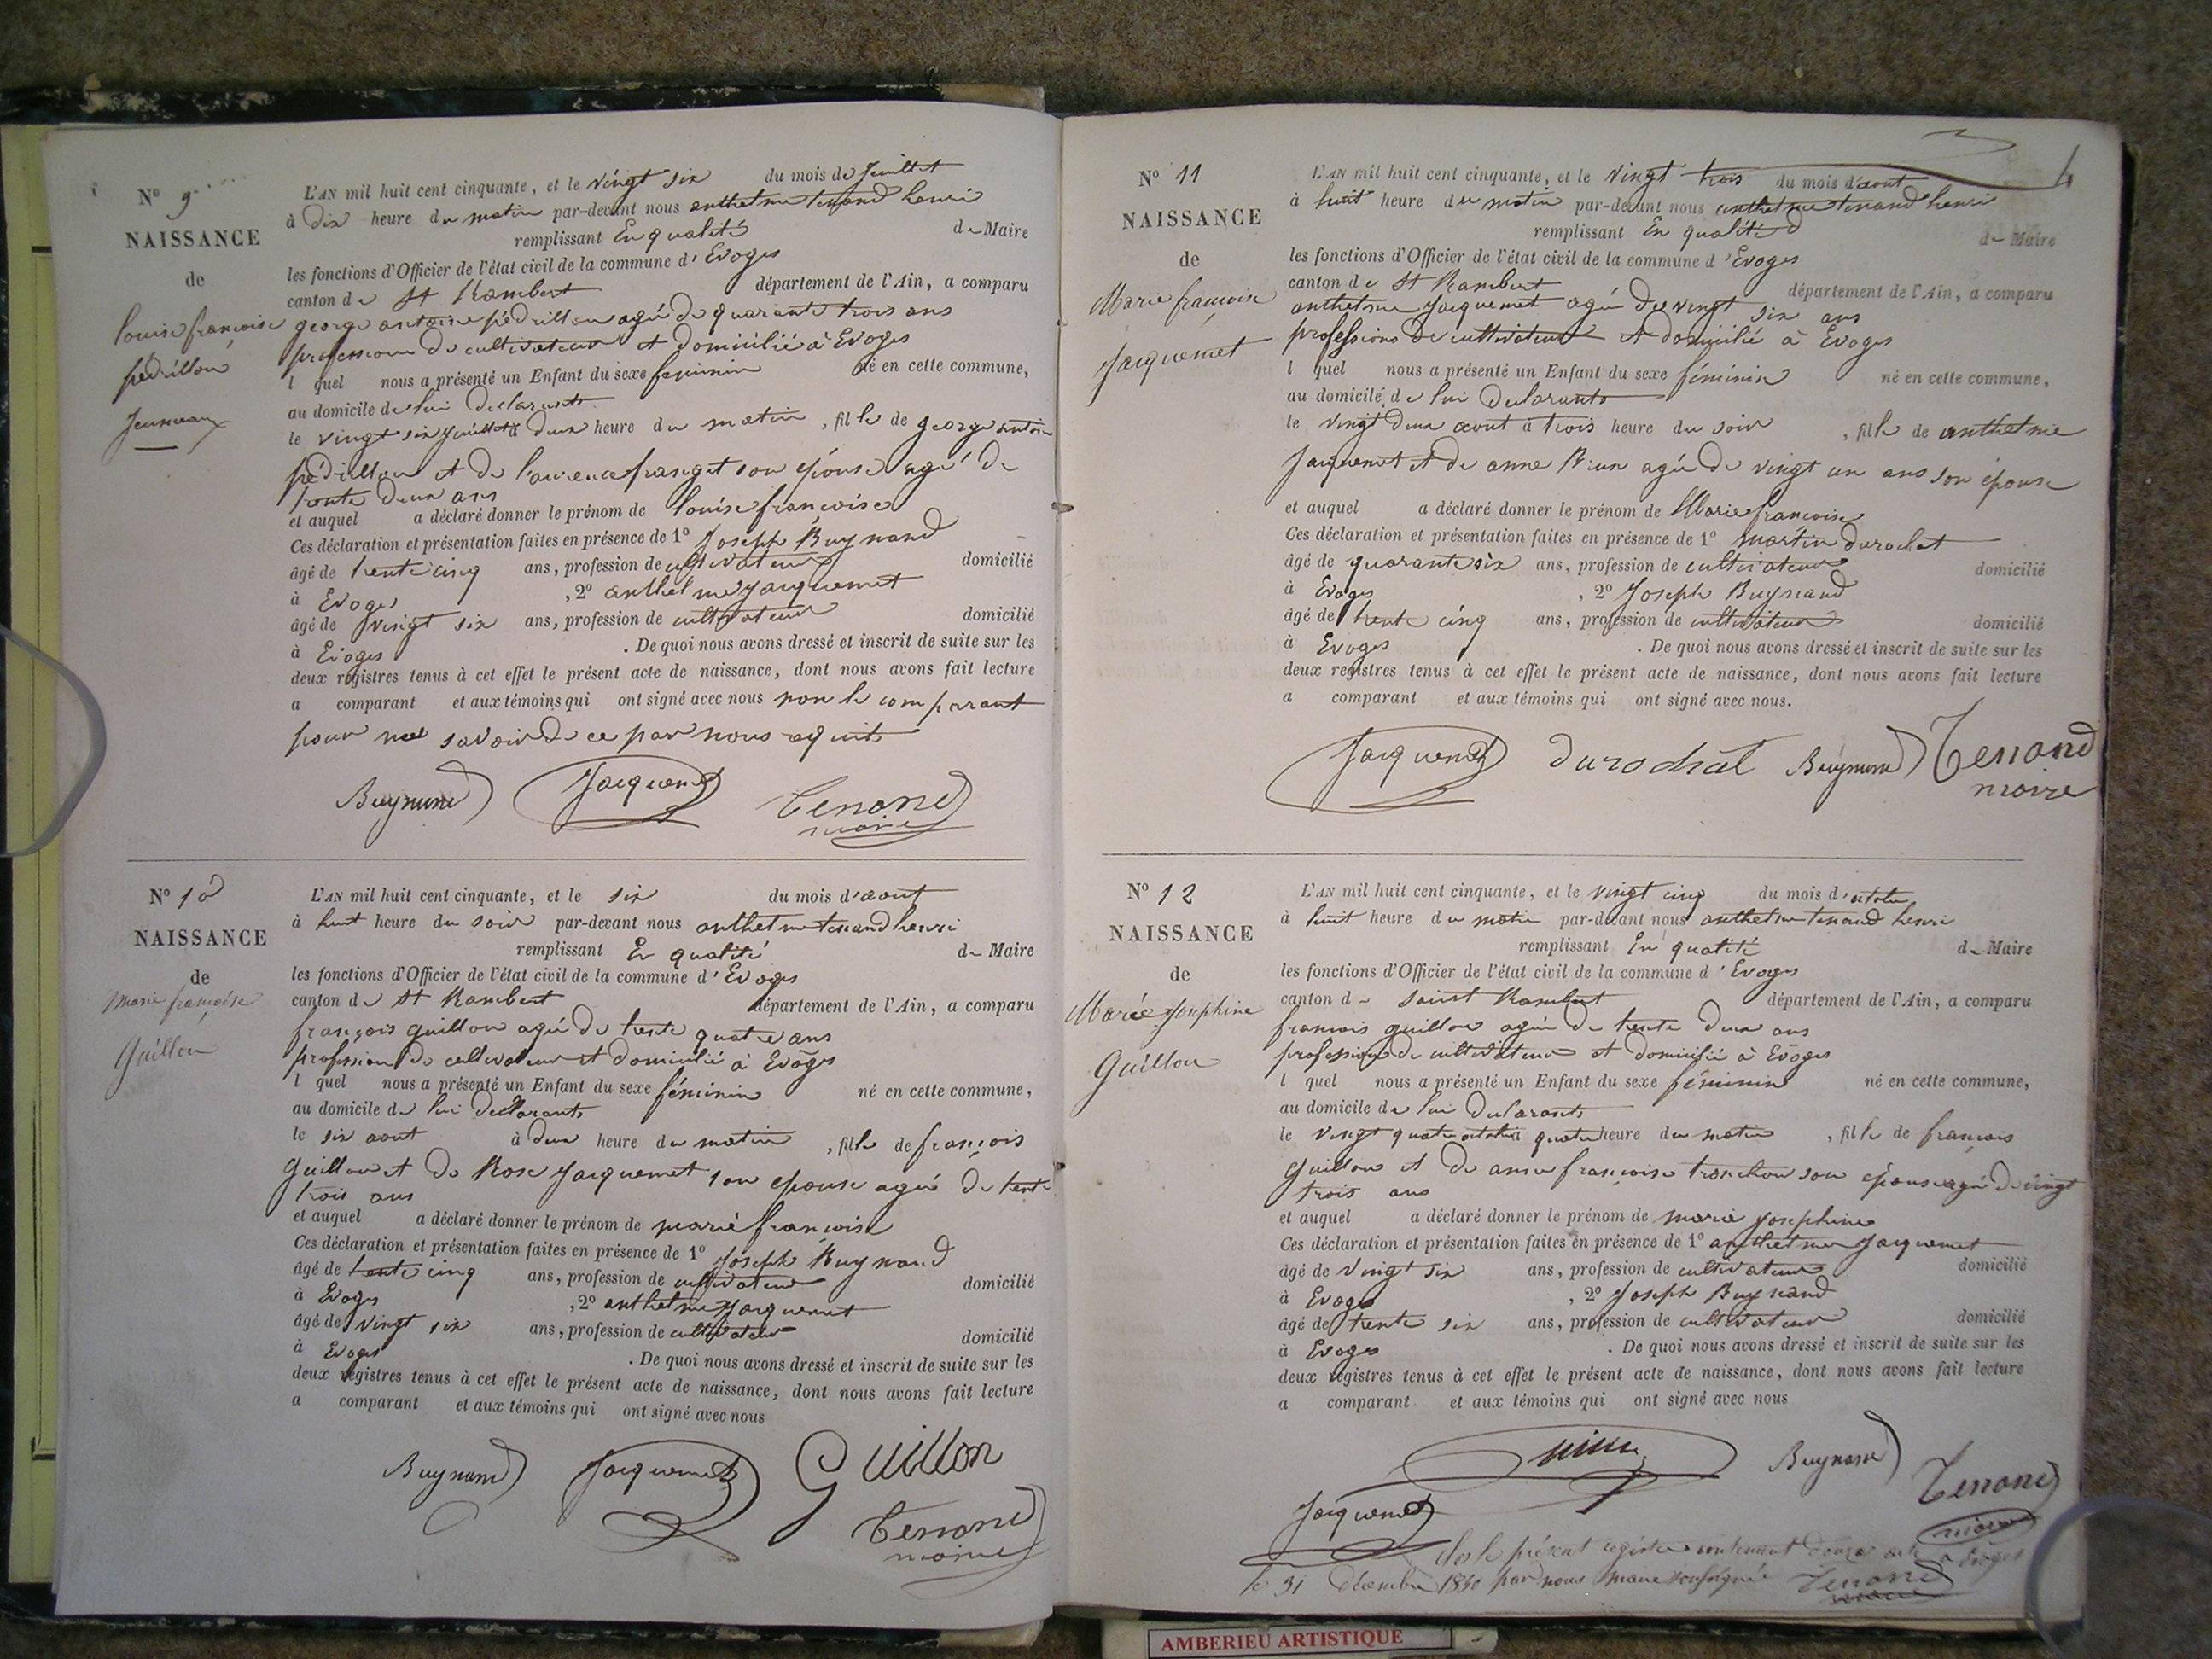 N° 9
NAISSANCE
de
louise françoise
pédrillon
Jumeaux
L'AN mil huit cent cinquante, et le vingt six du mois de Juillet
à dix heure du matin par-devant nous anthelme tenand henri
remplissant En qualité de Maire
les fonctions d'Officier de l'état civil de la commune d'Evoges
canton de St Rambert département de l'Ain, a comparu
george antoine pédrillon agé de quarante trois ans
profession de cultivateur et domicilié à Evoges
l quel nous a présenté un Enfant du sexe feminin né en cette commune,
au domicile de lui declarants
le vingt six Juillet à deux heure du matin, fille de george antoine
pédrillon et de laurence franget son épouse agé de
trente deux ans
et auquel a déclaré donner le prénom de louise françoise
Ces déclaration et présentation faites en présence de 1° Joseph Buynand
âgé de trente cinq ans, profession de cultivateur domicilié
à Evoges, 2° anthelme jacquemet
âgé de vingt six ans, profession de cultivateur domicilié
à Evoges. De quoi nous avons dressé et inscrit de suite sur les
deux registres tenus à cet effet le présent acte de naissance, dont nous avons fait lecture
a comparant et aux témoins qui ont signé avec nous non le comparant
pour ne savoir de ce par nous requit
Buynand Jacquemet Tenand
maire
N° 10
NAISSANCE
de
Marie françoise
Guillon
L'AN mil huit cent cinquante, et le six du mois d'aout
à huit heure du soir par-devant nous anthelme tenand henri
remplissant En qualité de Maire
les fonctions d'Officier de l'état civil de la commune d'Evoges
canton de St Rambert département de l'Ain, a comparu
françois guillon agé de trente quatre ans
profession de cultivateur et domicilié à Evoges
l quel nous a présenté un Enfant du sexe féminin né en cette commune,
au domicile de lui declarants
le six aout à deux heure du matin, fille de françois
Guillon et de Rose jacquemet son epouse agé de trente
trois ans
et auquel a déclaré donner le prénom de marie françoise
Ces déclaration et présentation faites en présence de 1° Joseph Buynand
âgé de trente cinq ans, profession de cultivateur domicilié
à Evoges, 2° anthelme jacquemet
âgé de vingt six ans, profession de cultivateur domicilié
à Evoges. De quoi nous avons dressé et inscrit de suite sur les
deux registres tenus à cet effet le présent acte de naissance, dont nous avons fait lecture
a comparant et aux témoins qui ont signé avec nous
Buynand Jacquemet Guillon
Tenand
maire
N° 11
NAISSANCE
de
Marie françoise
Jacquemet
L'AN mil huit cent cinquante, et le vingt trois du mois d'aout
à huit heure du matin par-devant nous anthelme tenand henri
remplissant En qualité de Maire
les fonctions d'Officier de l'état civil de la commune d'Evoges
canton de St Rambert département de l'Ain, a comparu
anthelme Jacquemet agé de vingt six ans
professions de cultivateur et domicilié à Evoges
l quel nous a présenté un Enfant du sexe féminin né en cette commune,
au domicile de lui declarants
le vingt deux aout à trois heure du soir, fille de anthelme
Jacquemet et de anne agée de vingt un ans son épouse
et auquel a déclaré donner le prénom de Marie françoise
Ces déclaration et présentation faites en présence de 1° martin durochat
âgé de quarante six ans, profession de cultivateur domicilié
à Evoges, 2° Joseph Buynand
âgé de trente cinq ans, profession de cultivateur domicilié
à Evoges. De quoi nous avons dressé et inscrit de suite sur les
deux registres tenus à cet effet le présent acte de naissance, dont nous avons fait lecture
a comparant et aux témoins qui ont signé avec nous.
Jacquemet durochat Buynand Tenand
maire
N° 12
NAISSANCE
de
Marie Josephine
Guillon
L'AN mil huit cent cinquante, et le vingt cinq du mois d'octobre
à huit heure du matin par-devant nous anthelme tenand henri
remplissant En qualité de Maire
les fonctions d'Officier de l'état civil de la commune d'Evoges
canton de saint Rambert département de l'Ain, a comparu
francois guillon agée de trente deux ans
profession de cultivateur et domicilié à Evoges
l quel nous a présenté un Enfant du sexe féminin né en cette commune,
au domicile de lui declarants
le vingt quatre octobre à quatre heure du matin, fille de françois
Guillon et de anne françoise tronchon son épouse agé de vingt
trois ans
et auquel a déclaré donner le prénom de marie josephine
Ces déclaration et présentation faites en présence de 1° anthelme Jacquemet
âgé de vingt six ans, profession de cultivateur domicilié
à Evoges, 2° Joseph Buynand
âgé de trente six ans, profession de cultivateur domicilié
à Evoges. De quoi nous avons dressé et inscrit de suite sur les
deux registres tenus à cet effet le présent acte de naissance, dont nous avons fait lecture
a comparant et aux témoins qui ont signé avec nous
Buynand
Tenand
Jacquemet maire
Clos le présent registre contenant douze acte a Evoges
le 31 décembre 1850 par nous maire soussigné Tenand
maire
AMBERIEU ARTISTIQUE